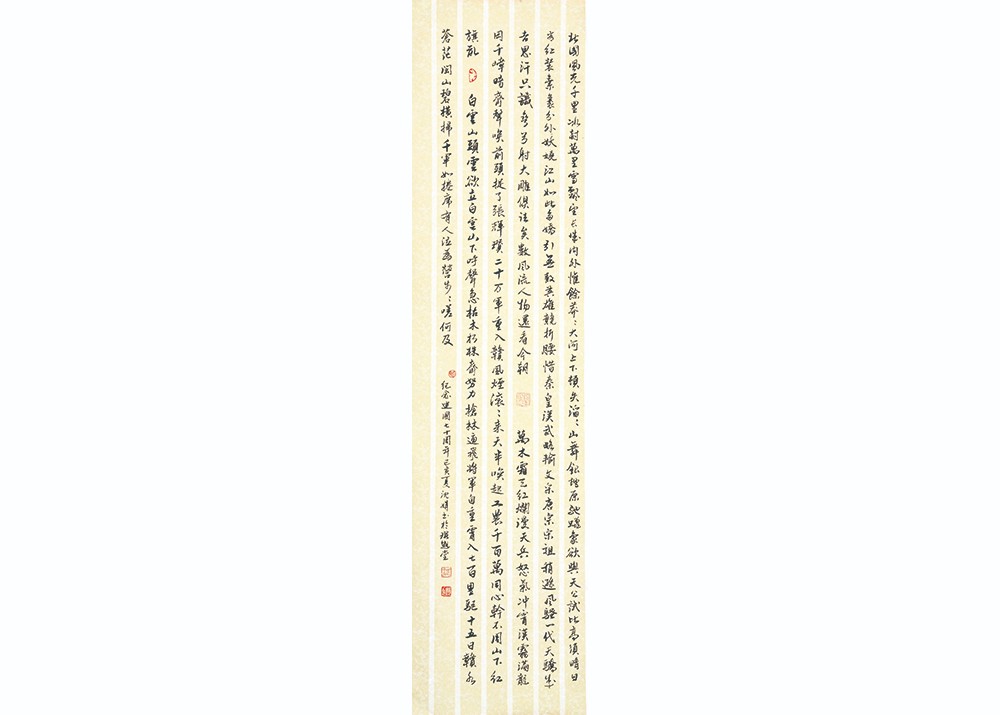 北國風光千里冰封萬里雪飄望長城內外惟餘莽：大河上下頓失滔：山舞銀蛇原馳蠟象欲與天公試比高須晴日
看紅裝素裹分外妖嬈江山如此多嬌引無數英雄競折腰惜秦皇漢武略輸文采唐宗宋祖稍遜風騷一代天驕成
吉思汗只識彎弓射大雕俱往矣數風流人物還看今朝 萬木霜天紅爛漫天兵怒氣沖霄漢霧滿龍
岡千嶂暗齊聲喚前頭捉了張輝瓚二十万軍重入贛風煙滾：來天半喚起工農千百萬同心幹不周山下紅
旗亂 白雲山頭雲欲立白雲山下呼聲急枯木朽株齊努力槍林逼飛將軍自重霄入七百里驅十五日贛水
蒼茫閩山碧橫掃千軍如捲席有人泣為營步：嗟何及
紀念建國七十周年己亥夏 書於 堂